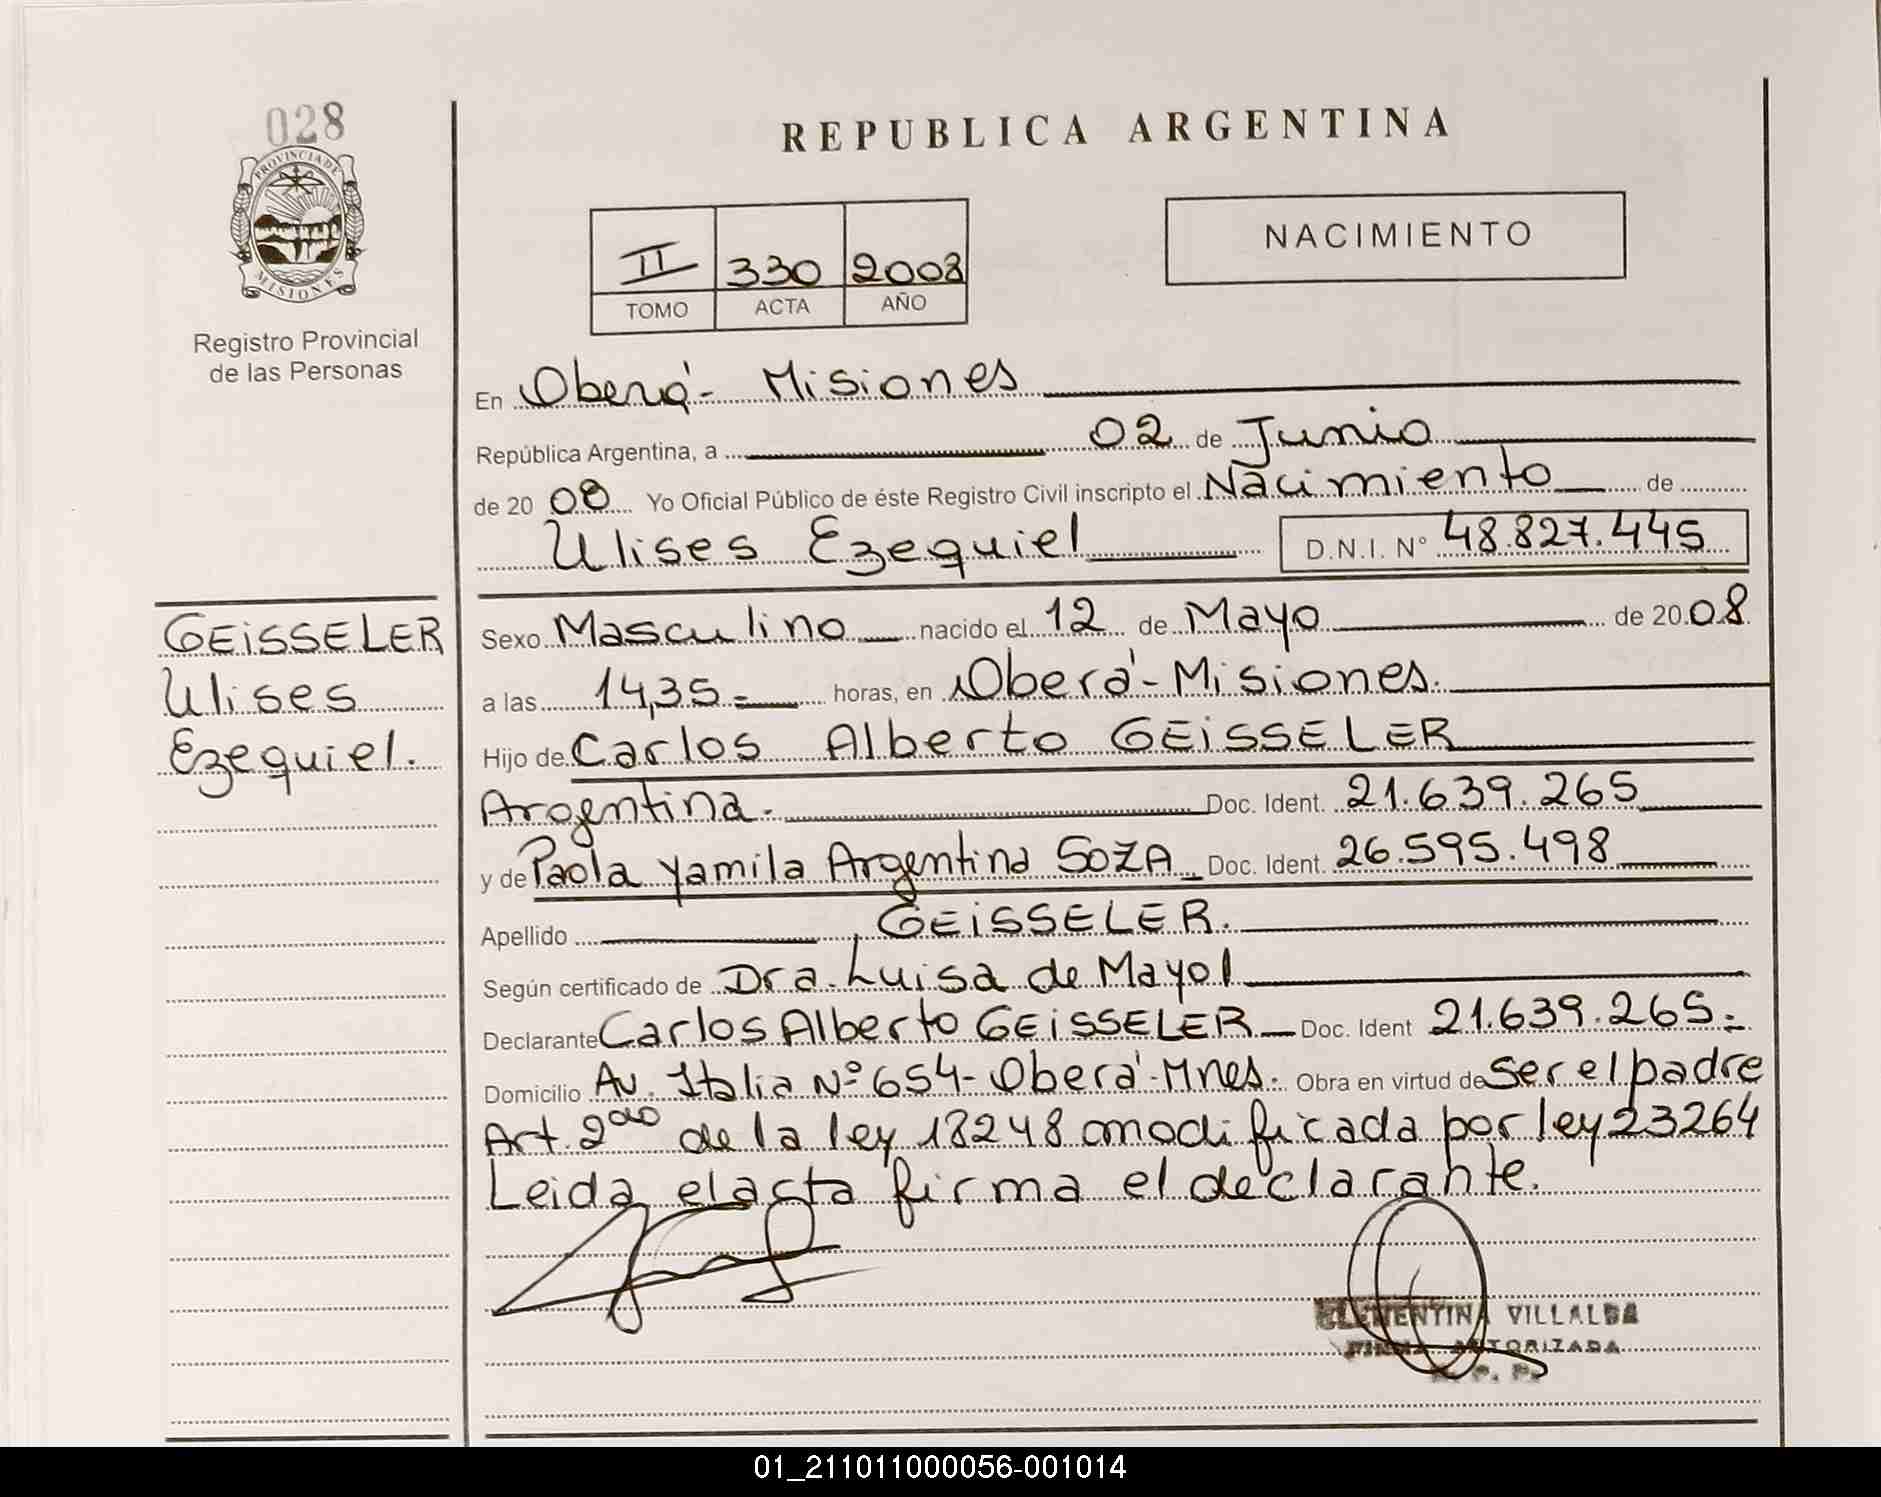 028
PROVINCIA DE
MISIONES
Registro Provincial
de las Personas
REPUBLICA ARGENTINA
NACIMIENTO
II 330 2008
TOMO ACTA AÑO
En Oberá - Misiones
República Argentina, a 02 de Junio
de 20 08 Yo Oficial Público de éste Registro Civil inscripto el Nacimiento de
Ulises Ezequiel D.N.I. Nº 48.827.445
GEISSELER
Ulises
Ezequiel.
Sexo Masculino nacido el 12 de Mayo de 20 08
a las 14,35.= horas, en Oberá - Misiones.
Hijo de Carlos Alberto GEISSELER
Argentina. Doc. Ident. 21.639.265
y de Paola Yamila Argentina SOZA Doc. Ident. 26.595.498
Apellido GEISSELER.
Según certificado de Dra. Luisa de Mayol
Declarante Carlos Alberto GEISSELER Doc. Ident 21.639.265.=
Domicilio Av. Italia Nº 654 - Oberá - Mnes. Obra en virtud de Ser el padre
Art. 2do de la ley 18248 modificada por ley 23264
Leida el acta firma el declarante.
CLEMENTINA VILLALBA
FIRMA AUTORIZADA
R. P. P.
01_211011000056-001014